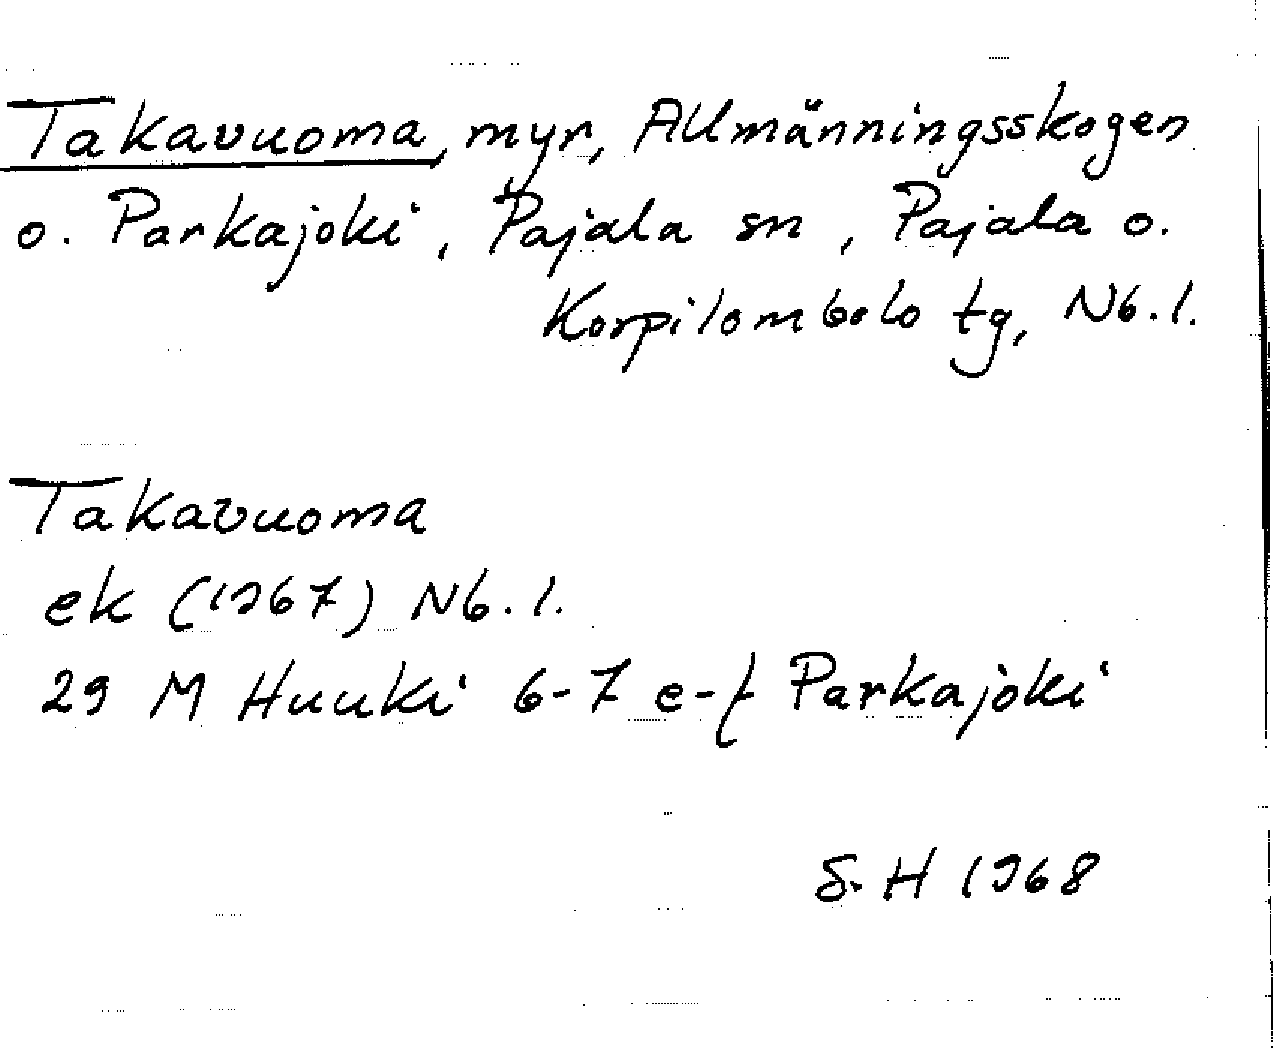 Takavuoma, myr, Allmänningsskogen
o. Parkajoki, Pajala sn, Pajala o.
Korpilombolo tg, Nb.l.
Takavuoma
ek (1967) Nb.l.
29 M Huuki 6-7 e-f Parkajoki
S. H 1968